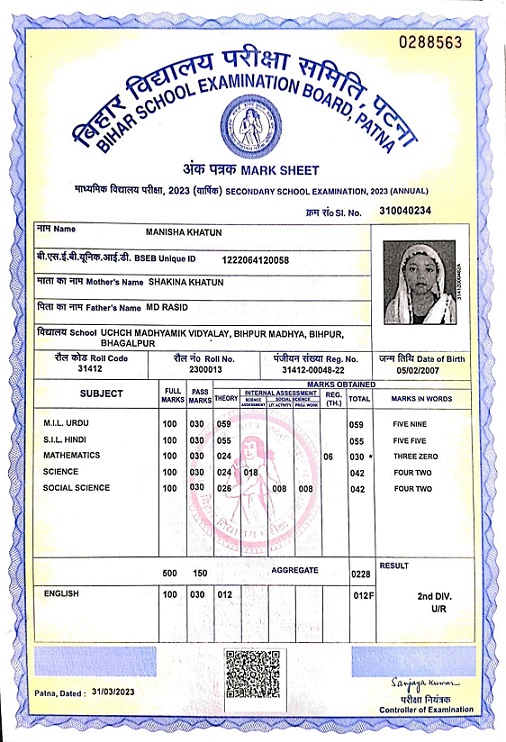 0288563
बिहार विद्यालय परीक्षा समिति, पटना
BIHAR SCHOOL EXAMINATION BOARD, PATNA
अंक पत्रक MARK SHEET
माध्यमिक विद्यालय परीक्षा, 2023 (वार्षिक) SECONDARY SCHOOL EXAMINATION, 2023 (ANNUAL)
क्रम सं० Sl. No. 310040234
नाम Name MANISHA KHATUN
बी.एस.ई.बी.यूनिक.आई.डी. BSEB Unique ID 1222064120058
माता का नाम Mother's Name SHAKINA KHATUN
पिता का नाम Father's Name MD RASID
विद्यालय School UCHCH MADHYAMIK VIDYALAY, BIHPUR MADHYA, BIHPUR,
BHAGALPUR
रौल कोड Roll Code रौल नं० Roll No. पंजीयन संख्या Reg. No. जन्म तिथि Date of Birth
31412 2300013 31412-00048-22 05/02/2007
SUBJECT FULL MARKS PASS MARKS MARKS OBTAINED
THEORY INTERNAL ASSESSMENT REG. (TH.) TOTAL MARKS IN WORDS
SCIENCE ASSESSMENT SOCIAL SCIENCE
LIT.ACTIVITY PROJ. WORK
M.I.L. URDU 100 030 059 059 FIVE NINE
S.I.L. HINDI 100 030 055 055 FIVE FIVE
MATHEMATICS 100 030 024 06 030 * THREE ZERO
SCIENCE 100 030 024 018 042 FOUR TWO
SOCIAL SCIENCE 100 030 026 008 008 042 FOUR TWO
500 150 AGGREGATE 0228 RESULT
ENGLISH 100 030 012 012F 2nd DIV.
U/R
Patna, Dated : 31/03/2023
Sanjaya Kumar
परीक्षा नियंत्रक
Controller of Examination